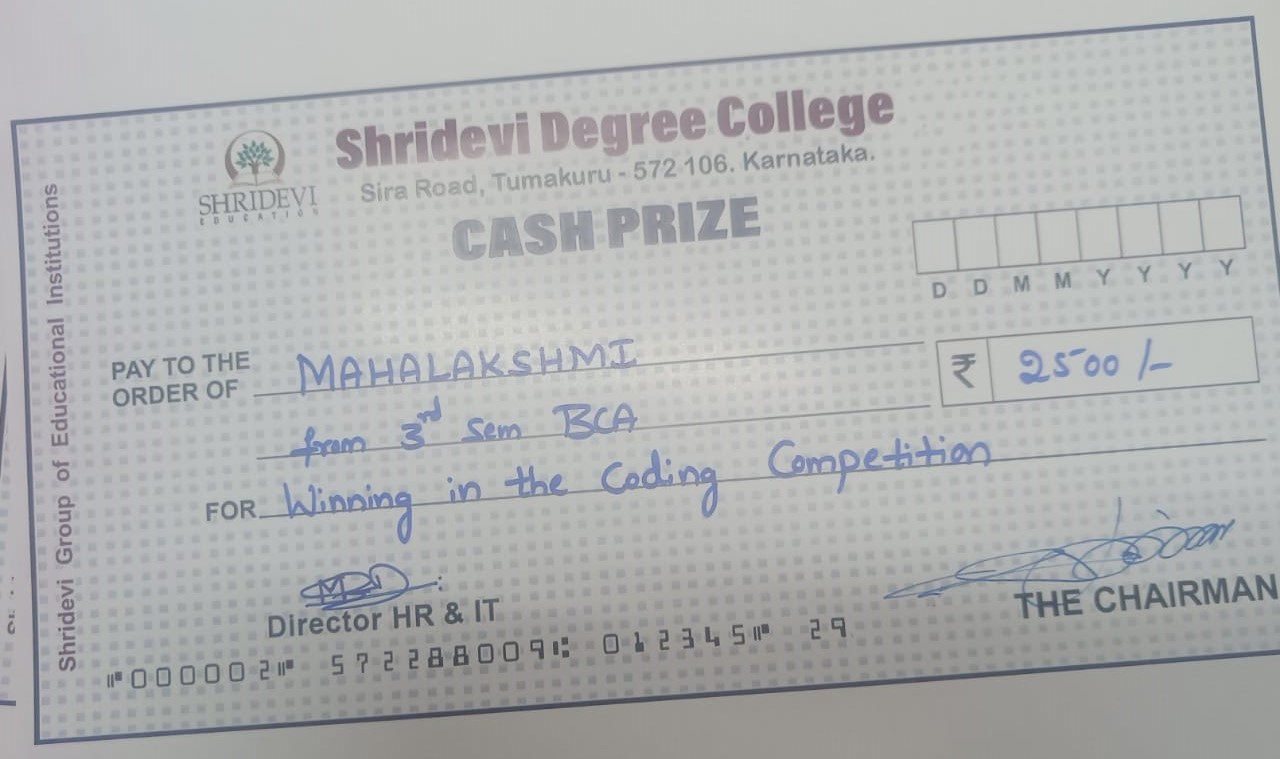 Shridevi Group of Educational Institutions
SHRIDEVI
EDUCATION
Shridevi Degree College
Sira Road, Tumakuru - 572 106. Karnataka.
CASH PRIZE
D D M M Y Y Y Y
PAY TO THE
ORDER OF MAHALAKSHMI
₹ 2500/-
from 3rd Sem BCA
FOR Winning in the Coding Competition
Director HR & IT
THE CHAIRMAN
⑈000002⑈ 572288009⑆ 012345⑈ 29